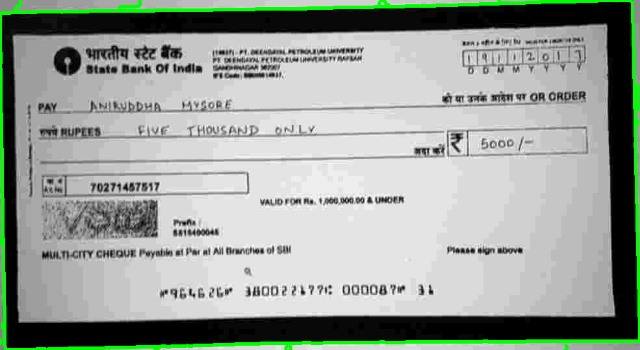 भारतीय स्टेट बैंक
State Bank Of India
(14837) - PT. DEENDAYAL PETROLEUM UNIVERSITY
PT. DEENDAYAL PETROLEUM UNIVERSITY RAISAN
GANDHINAGAR 382007
19112017
D D M M Y Y Y Y
PAY ANIRUDDHA MYSORE को या उनके आदेश पर OR ORDER
रुपये RUPEES FIVE THOUSAND ONLY
अदा करें ₹ 5000/-
A/c No. 70271457517
VALID FOR Rs. 1,000,000.00 & UNDER
Prefix :
MULTI-CITY CHEQUE Payable at Par at All Branches of SBI
Please sign above
⑈964626⑈ 380022177⑆ 000087⑈ 31